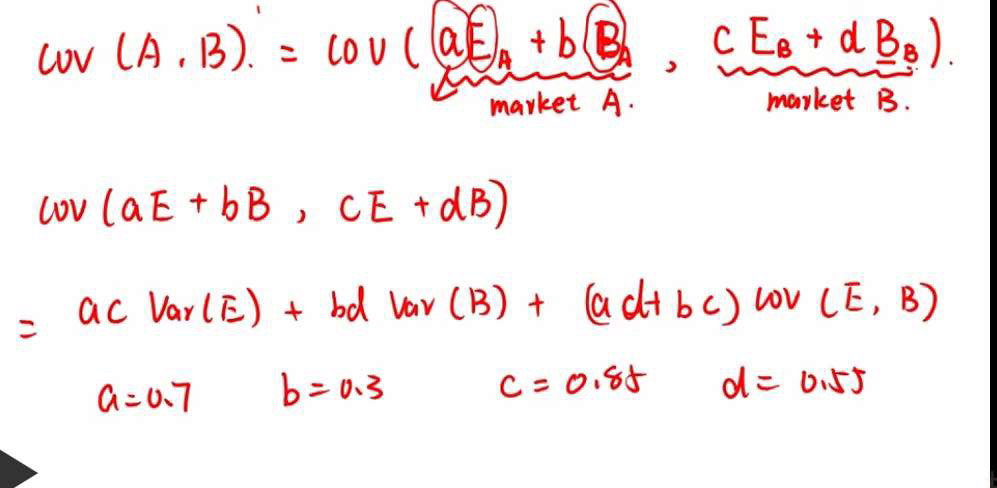 cov (A, B). = cov ( aE_A + b B_A , c E_B + d B_B ).
market A. market B.
cov (aE + bB , cE + dB)
= ac Var(E) + bd Var (B) + (ad + bc) cov (E, B)
a = 0.7 b = 0.3 c = 0.85 d = 0.55